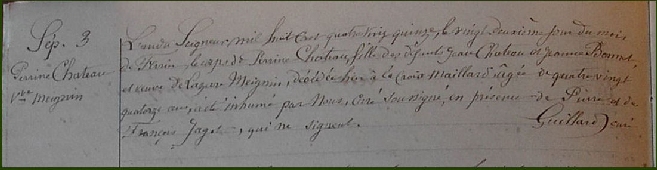 Sép. 3
Perrine Chateau
Vve Meignin
L'an du Seigneur, mil huit cent quatre vingt quinze, le vingt deuxième jour du mois
de Juin le corps de Perrine Chateau, fille des défunts Jean Chateau et Jeanne Bonnet,
et veuve de Meignin, décédée hier à la Croix Maillard âgée de quatre vingt
quatorze ans, a été inhumé par Nous, curé soussigné, en présence de Pierre et de
François Jaget, qui ne signent.
Guillard, curé